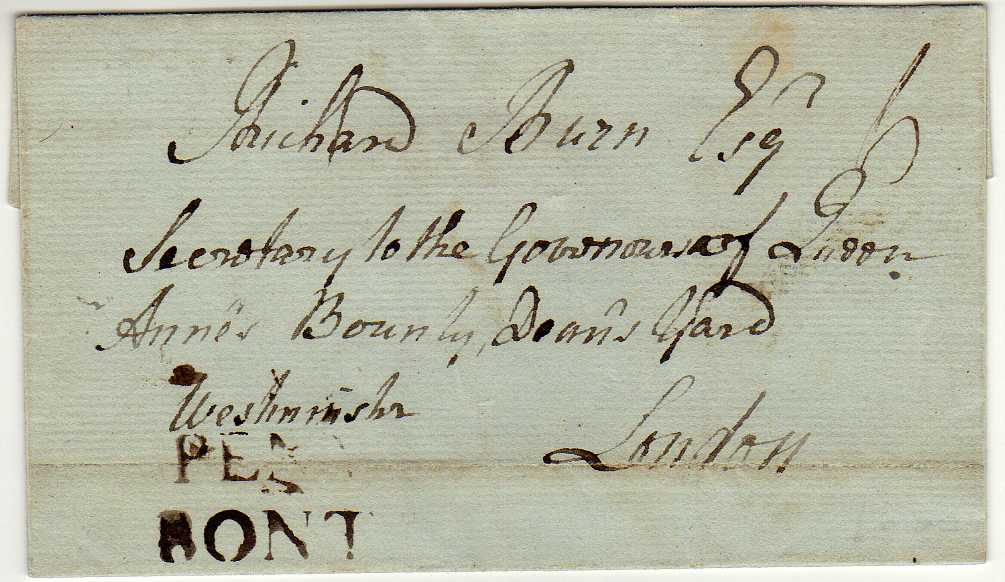 Richard Burn Esqr 6
Secretary to the Governours of Queen
Anne's Bounty, Dean's Yard
Westminster
London
PEN
BONT